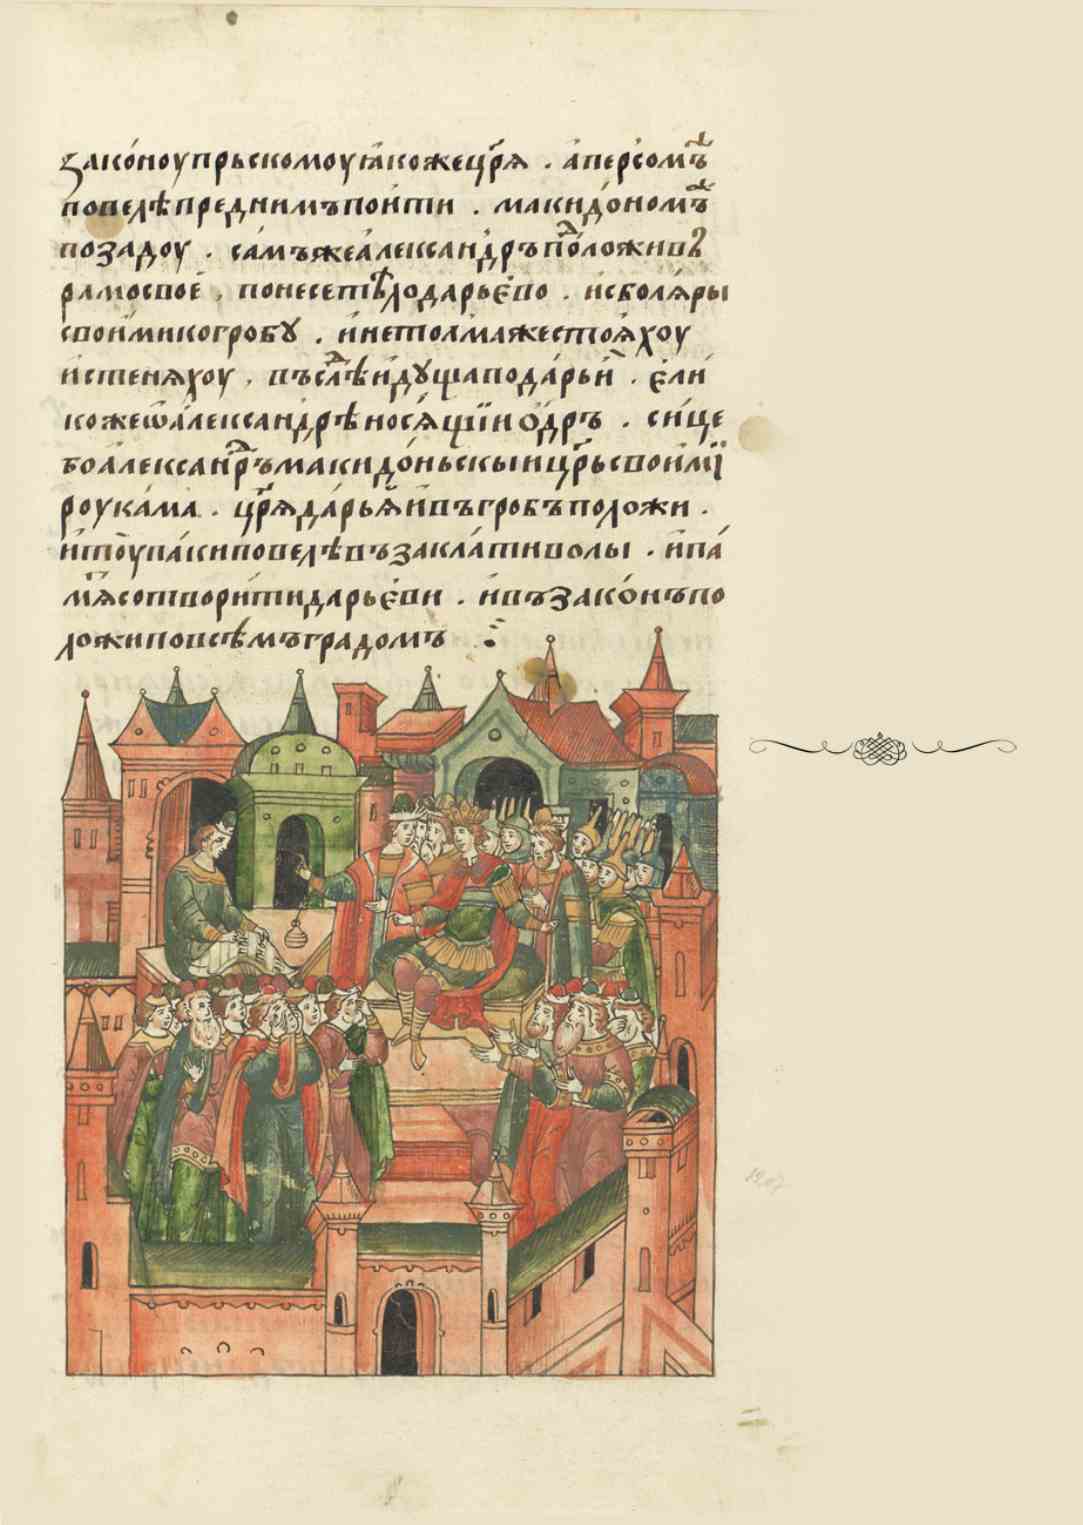 зако́ноупрьскомоуꙗ́кожецр҃ѧ . а҆пе́рсомъ
повелѣпреднимъпоитти . маки́дономъ
позадоу . са́мъжеалекса́ндръполо́живъ
рамосвое . понесетѣлодарье́во . исболѧ́ры
свои́микогробꙋ . и҆нетолмажестоѧ́хоу
и҆стенѧхоу . въслѣ́дъи҆дꙋщапода́рьи . е҆ли
кожеѡа́лекса́ндрѣносѧ́щїио҆́дръ . си́це
боа́лекса́ндръмакидо́ньскыицр҃ьсвои́мї
роука́ма . цр҃ѧда́рьѧивъгробъположи .
и҆тоупа́киповелѣвъзакла́тиволы . и҆па́
мѧсотвори́тидарье́ви . и҆възако́нъпо
ложиповсѣмъградомъ